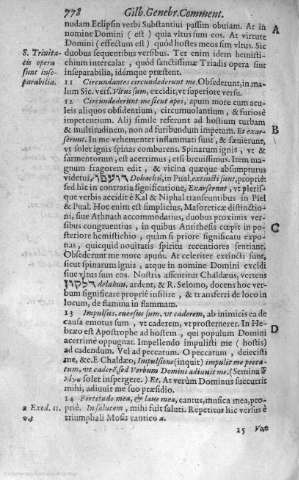 778 Gilb. Genebr. Comment.
nudam Eclipsin verbi Substantiui passim obuiam. At in
nomine Domini (est) quia vltus sum eos. At virtute
Domini (effectum est) quòd hostes meos sim vltus. Sic
duobus sequentibus versibus. Ter enim idem hemisti-
chium intercalat, quòd sanctissimæ Triadis opera sint
inseparabilia, idémque præstent.
S. Trinita-
tis opera
sunt inse-
parabilia.
11 Circundantes circundederunt me. Obsederunt, in ma-
lum Sic. vers. Vltus sum, excidit, vt superiore versu.
12 Circundederunt me sicut apes, apum more cum acu-
leis aliquos obsidentium, circumuolantium, & furiosè
impetentium. Alij simile referunt ad hostium turbam
& multitudinem, non ad furibundum impetum. Et exar-
serunt. In me vehementer inflammati sunt, & sæuierunt,
vt solet ignis spinas comburens. Spinarum ignis, vt &
sarmentorum, est acerrimus, etsi breuissimus. Item ma-
gnum fragorem edit, & vicina quæque absumpturus
videtur, דועכו Dohachú, in Pual, extincti sunt, propriè:
sed hîc in contraria significatione, Exarserunt, vt pleris-
que verbis accidit è Kal & Niphal transeuntibus in Piel
& Pual. Hoc enim est simplicius, Masoreticæ distinctio-
ni, siue Athnath accommodatius, duobus proximis ver-
sibus congruentius, in quibus Antithesis cœpit in po-
steriore hemistichio, quàm si priore significatè expo-
nas, quicquid nouitatis spiritu recentiores sentiunt.
Obsederunt me more apum. At celeriter extincti sunt,
sicut spinarum ignis, atque in nomine Domini excidi
siue vltus sum eos. Nostris assentitur Chaldæus, vertens
דלקין delakin, ardent, & R. Selomo, docens hoc ver-
bum significare propriè insilire, & transferri de loco in
locum, de flamma in flammam.
13 Impulsus, euersus sum, vt caderem, ab inimicis ea de
causa emotus sum, vt caderem, vt prosternerer. In He-
bræo est Apostrophe ad hostem, qui populum Domini
acerrimè oppugnat. Impellendo impulisti me (hostis)
ad cadendum. Vel ad peccatum. O peccatum, deiecisti
me, &c. E Chaldæo, Impulisse (inquit) impulit me pecca-
tum, vt caderé, sed Verbum Domini adiuuit me. (Semina
solet inspergere.) Et. At verùm Dominus succurrit
mihi, adiuuit me suo præsidio.
14 Fortitudo mea, & laus mea, cantus, musica mea, pro-
priè. In salutem, mihi fuit saluti. Repetitur hic versus è
triumphali Mosis cantico a.
a Exod. 15.
A
B
C
D
15 Vox